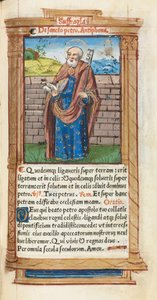 Suffragia
De sancto petro. Antiphona.
Quodcumq; ligaveris super terram : erit
ligatum et in celis. Et quodcumq; solveris super
terram erit solutum et in celis dicit dominus
petro. Tu es petrus. Et super hanc
petram edificabo ecclesiam meam. Oratio.
Deus qui beato petro apostolo tuo collatis
clavibus regni celestis ligandi atq; sol
vendi pontificium tradidisti concede ut inter
ventionis eius auxilio a peccatorum nostrorum nexi
bus liberemur. Qui vivis et regnas deus
Per omnia secula seculorum. Amen.